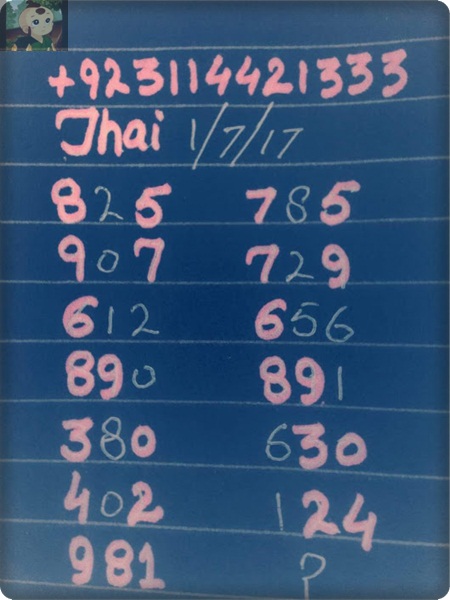 +923114421333
Thai 1/7/17
825 785
907 729
612 656
890 891
380 630
402 124
981 ?